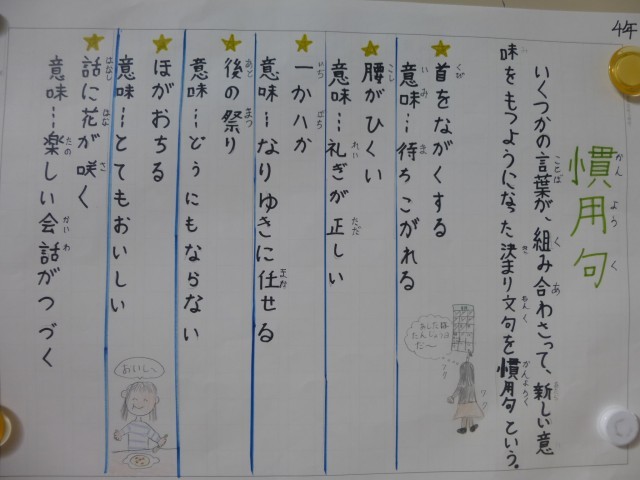 4年
慣用句
いくつかの言葉が、組み合わさって、新しい意
味をもつようになった決まり文句を慣用句という。
首をながくする
意味…待ちこがれる
腰がひくい
意味…礼ぎが正しい
一か八か
意味…なりゆきに任せる
後の祭り
意味…どうにもならない
ほがおちる
意味…とてもおいしい
話に花が咲く
意味…楽しい会話がつづく
おいしい